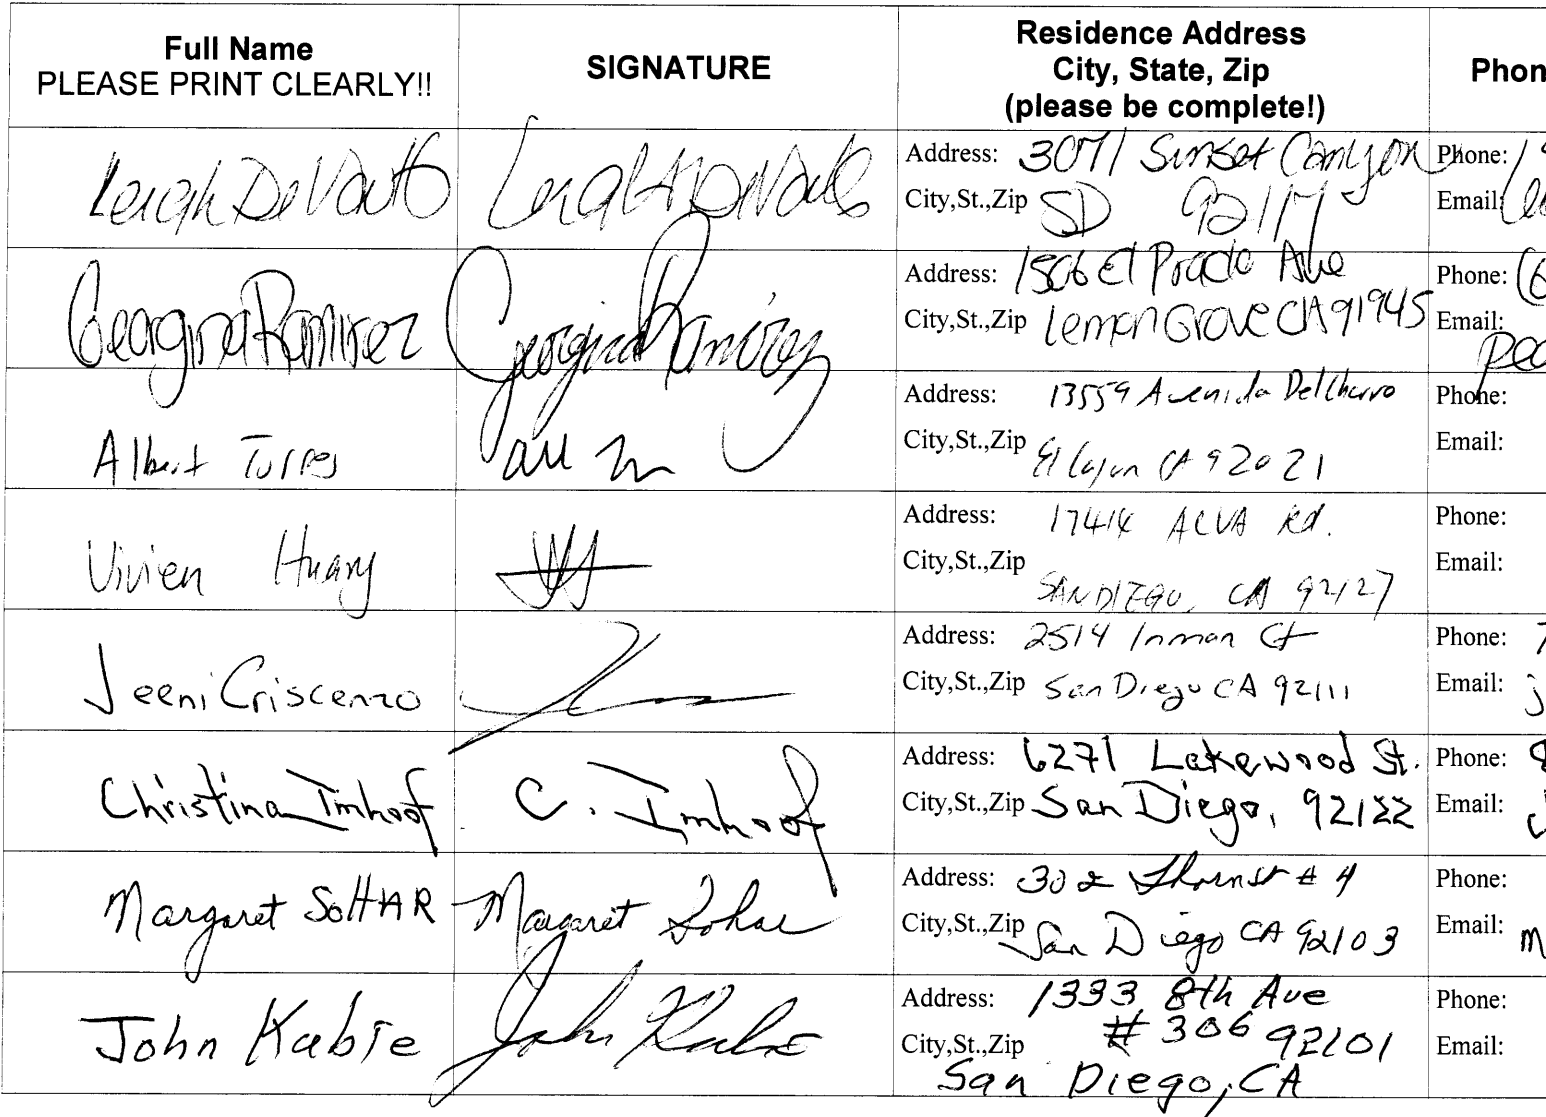 Full Name
PLEASE PRINT CLEARLY!!
SIGNATURE
Residence Address
City, State, Zip
(please be complete!)
Phon
Leigh DeVaulS
Address: 3071 Sunset Canyon
City,St.,Zip SD 92117
Phone:
Email:
Georgina Ramirez
Georgina Ramirez
Address: 1506 El Prado Ave
City,St.,Zip Lemon Grove CA 91945
Phone: (6
Email:
Albert Torres
Address: 13559 Avenida Del Charro
City,St.,Zip El Cajon CA 92021
Phone:
Email:
Vivien Huang
Address: 17414 ALVA Rd.
City,St.,Zip SAN DIEGO, CA 92127
Phone:
Email:
Jeeni Criscenzo
Address: 2514 Inman Ct
City,St.,Zip San Diego CA 92111
Phone: 7
Email: j
Christina Imhoof
C. Imhoof
Address: 6271 Lakewood St.
City,St.,Zip San Diego, 92122
Phone: 8
Email:
Margaret SoHAR
Margaret Sohar
Address: 302 Thorn St # 4
City,St.,Zip San Diego CA 92103
Phone:
Email: m
John Kabie
John Kabie
Address: 1333 8th Ave
# 306 92101
City,St.,Zip San Diego, CA
Phone:
Email: